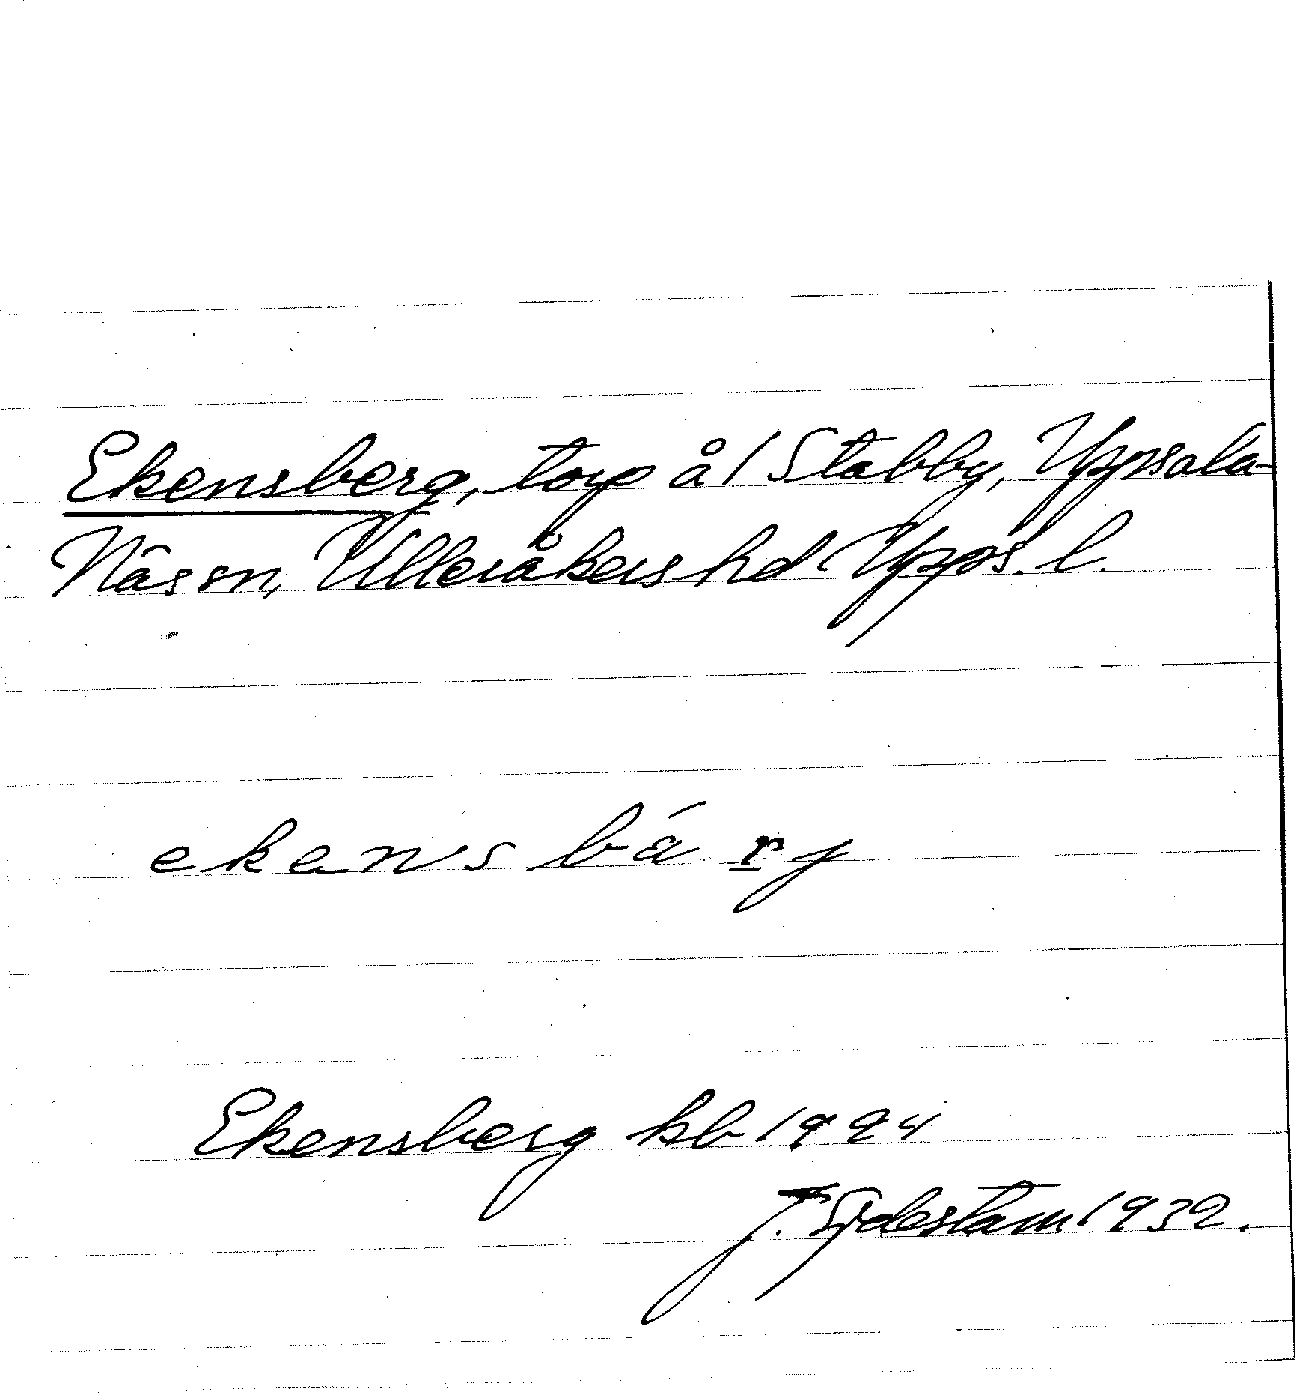 Ekensberg, torp å/ Stabby, Uppsala-
Näs sn, Ulleråkers hd Upps. l.
ekensbárj
Ekensberg kb 1924
J. Sjdestam 1932.